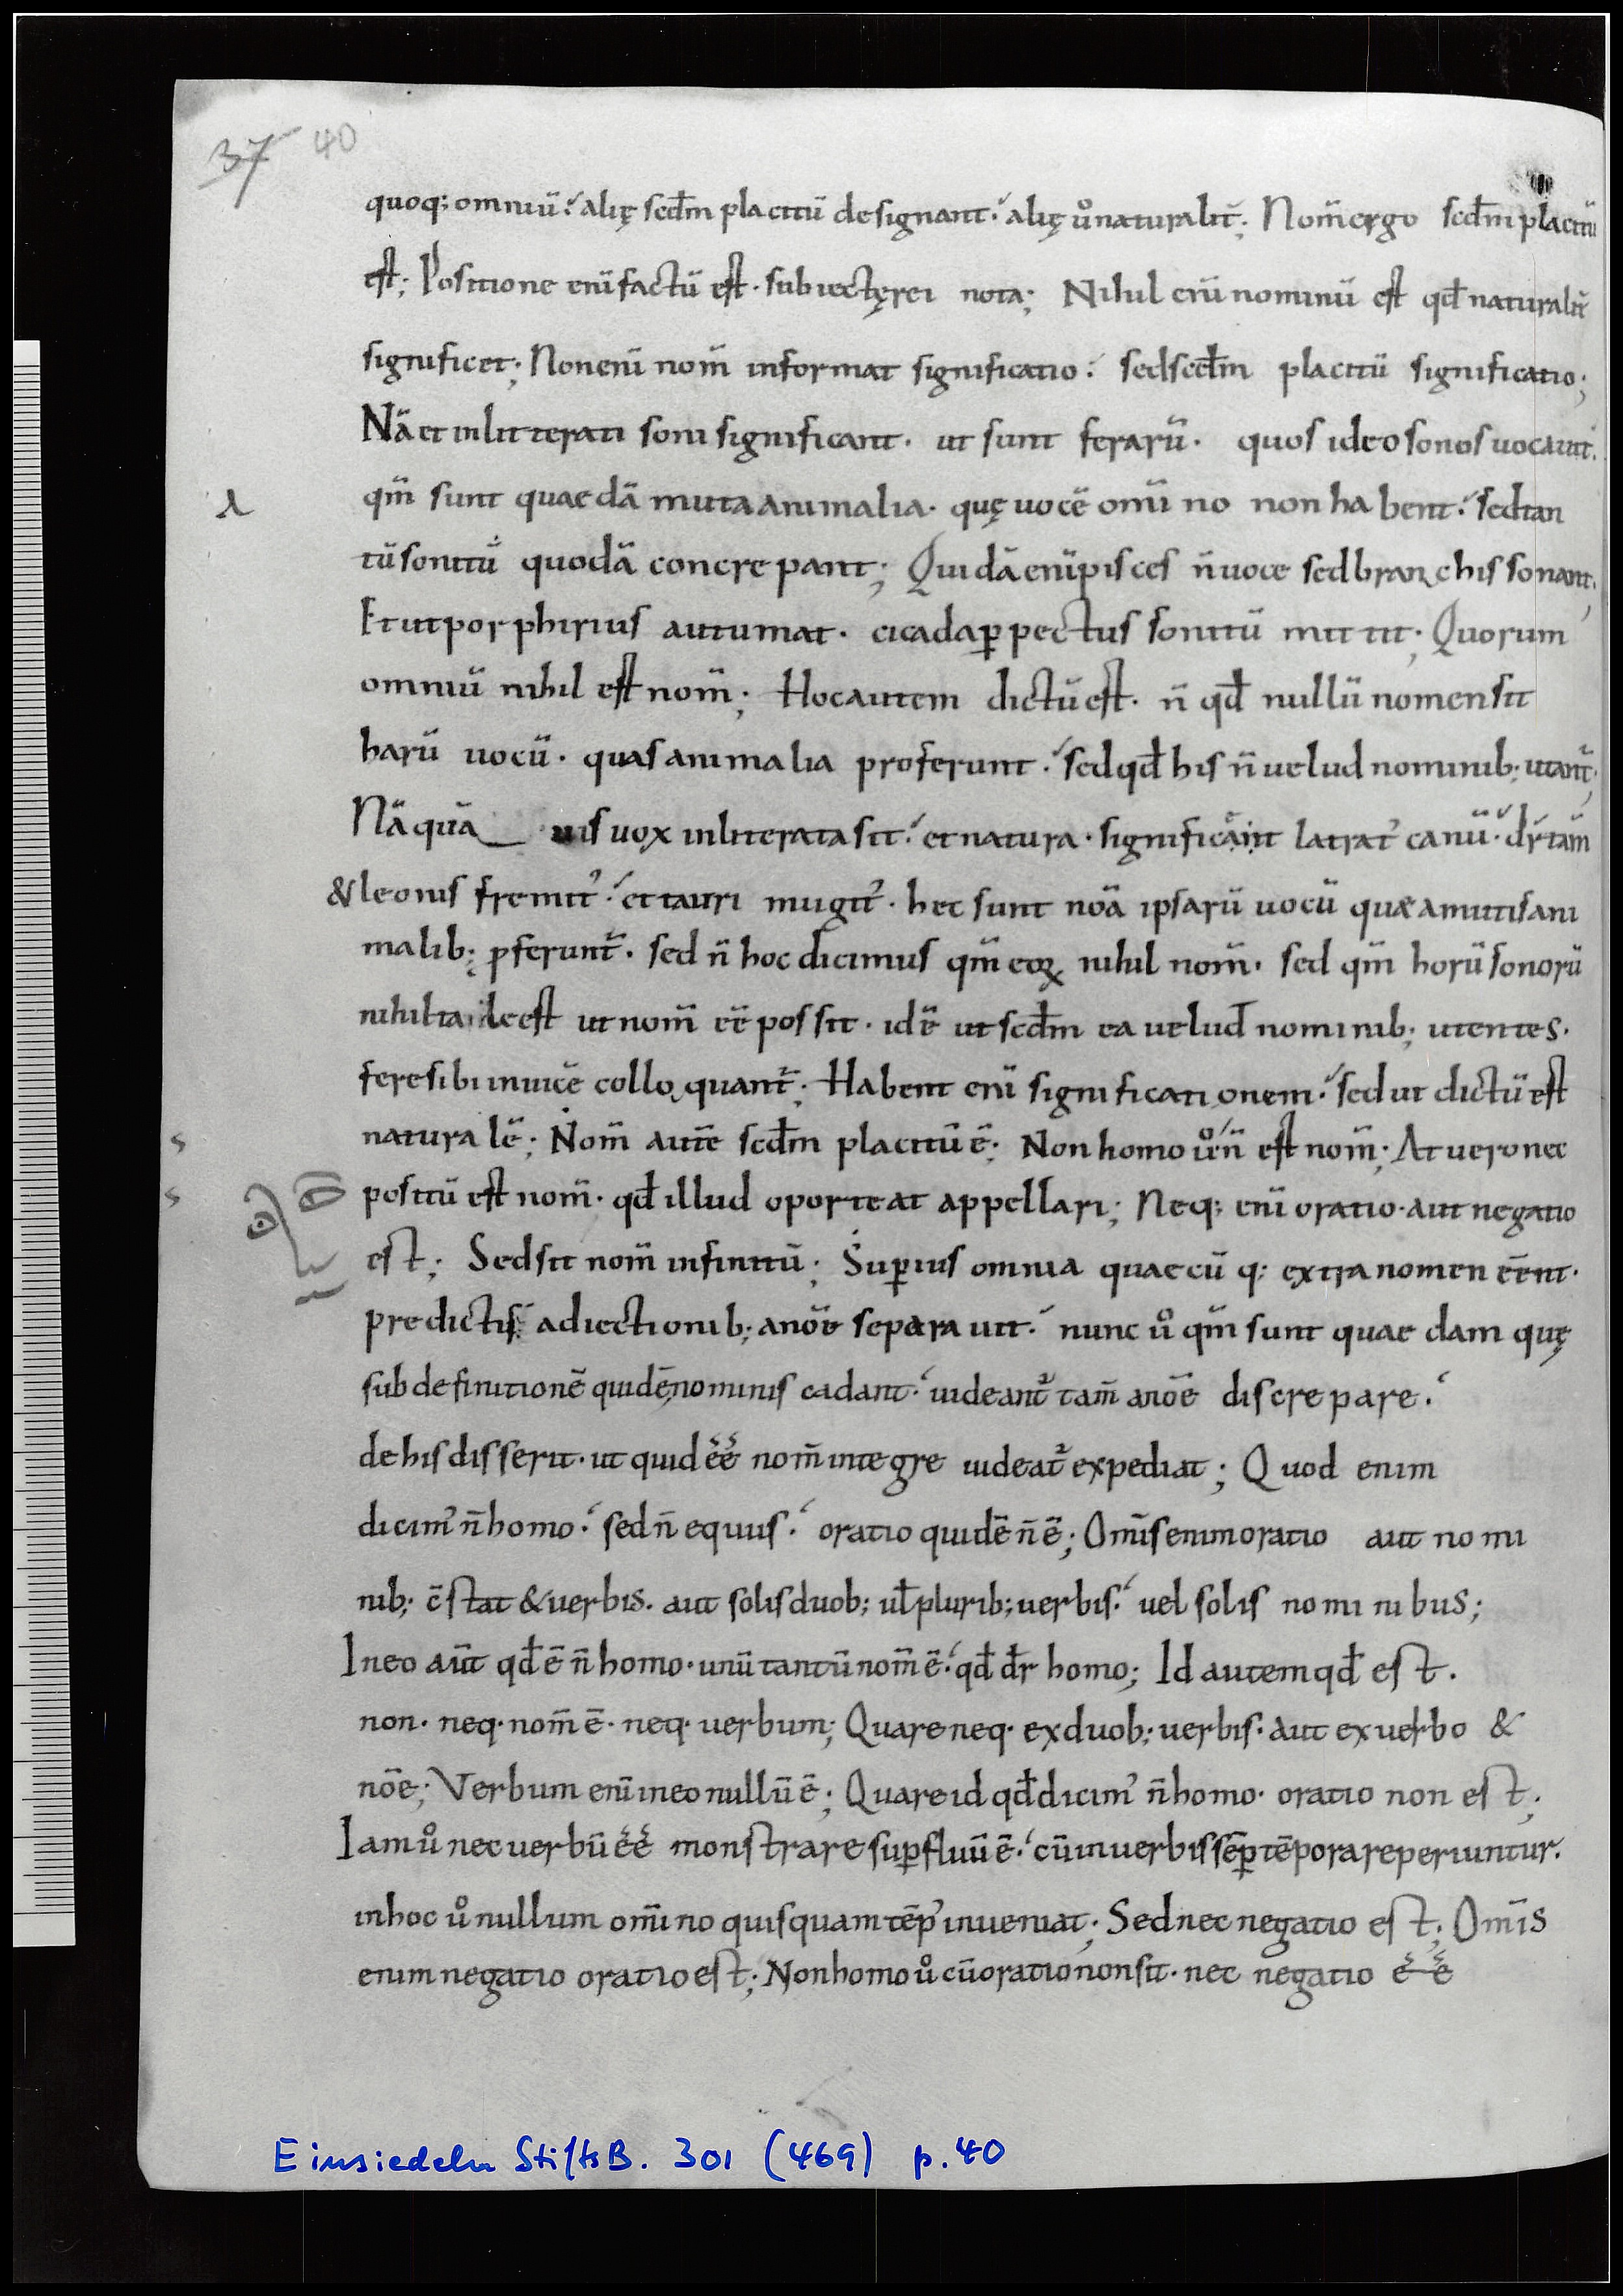 37 40
quoq; omniū. alię scđm placitū designant. alię ů naturalit̄; Nom̄ ergo scđm placitū
est; Positione enī factū est. subiectę rei nota; Nihil enī nominū est qđ naturalit̄
significet; Non enī nom̄ informat significatio. sed scđm placitū significatio;
Nā et inlitterati soni significant. ut sunt ferarū. quos ideo sonos uocauit.
qm̄ sunt quaedā muta animalia. quę uocē omīno non habent. sed tan
tū sonitū quodā concrepant; Quidā enī pisces n̄ uoce sed branchis sonant.
Et ut porphirius autumat. cicada ꝑ pectus sonitū mittit; Quorum
omniū nihil est nom̄; Hoc autem dictū est. n̄ qđ nullū nomen sit
harū uocū. quas animalia proferunt. sed qđ his n̄ uelud nominib; utant̄;
Nā quā uis uox inliterata sit. et natura. significānt latrat' canū. dr̄ tām
& leonis fremit'. et tauri mugit'. hec sunt nōa ipsarū uocū quæ a mutis ani
malib; ꝓferunt̄. sed n̄ hoc dicimus qm̄ eoꝝ nihil nom̄. sed qm̄ horū sonorū
nihil tale est ut nom̄ eē possit. id ē ut scđm ea uelud nominib; utentes.
fere sibi inuicē colloquant̄; Habent enī significationem. sed ut dictū est
naturalē; Nom̄ autē scđm placitū ē; Non homo ů n̄ est nom̄; At uero nec
positū est nom̄. qđ illud oporteat appellari; Neq; enī oratio. aut negatio
est; Sed sit nom̄ infinitū; Suꝑius omnia quaecūq; extra nomen eēnt.
predictis adiectionib; a nōe separauit. nunc ů qm̄ sunt quaedam quę
sub definitionē quidē nominis cadant. uideant̄ tam̄ a nōe discrepare.
de his disserit. ut quid eē nom̄ integre uideat̄ expediat; Quod enim
dicim' n̄ homo. sed n̄ equus. oratio quidē n̄ ē; Om̄is enim oratio aut nomi
nib; c̄stat & uerbis. aut solis duob; ul̄ plurib; uerbis. uel solis nominibus;
In eo aūt qđ ē n̄ homo. unū tantū nom̄ ē. qđ dr̄ homo; Id autem qđ est.
non. neq. nom̄ ē. neq. uerbum; Quare neq. ex duob; uerbis. aut ex uerbo &
nōe; Verbum enī in eo nullū ē; Quare id qđ dicim' n̄ homo. oratio non est;
Iam ů nec uerbū eē monstrare suꝑfluū ē. cū in uerbis sēꝑ tēpora reperiuntur.
in hoc ů nullum omīno quisquam tēp' inueniat; Sed nec negatio est; Om̄is
enim negatio oratio est; Non homo ů cū oratio non sit. nec negatio eē
Einsiedeln StiftsB. 301 (469) p. 40